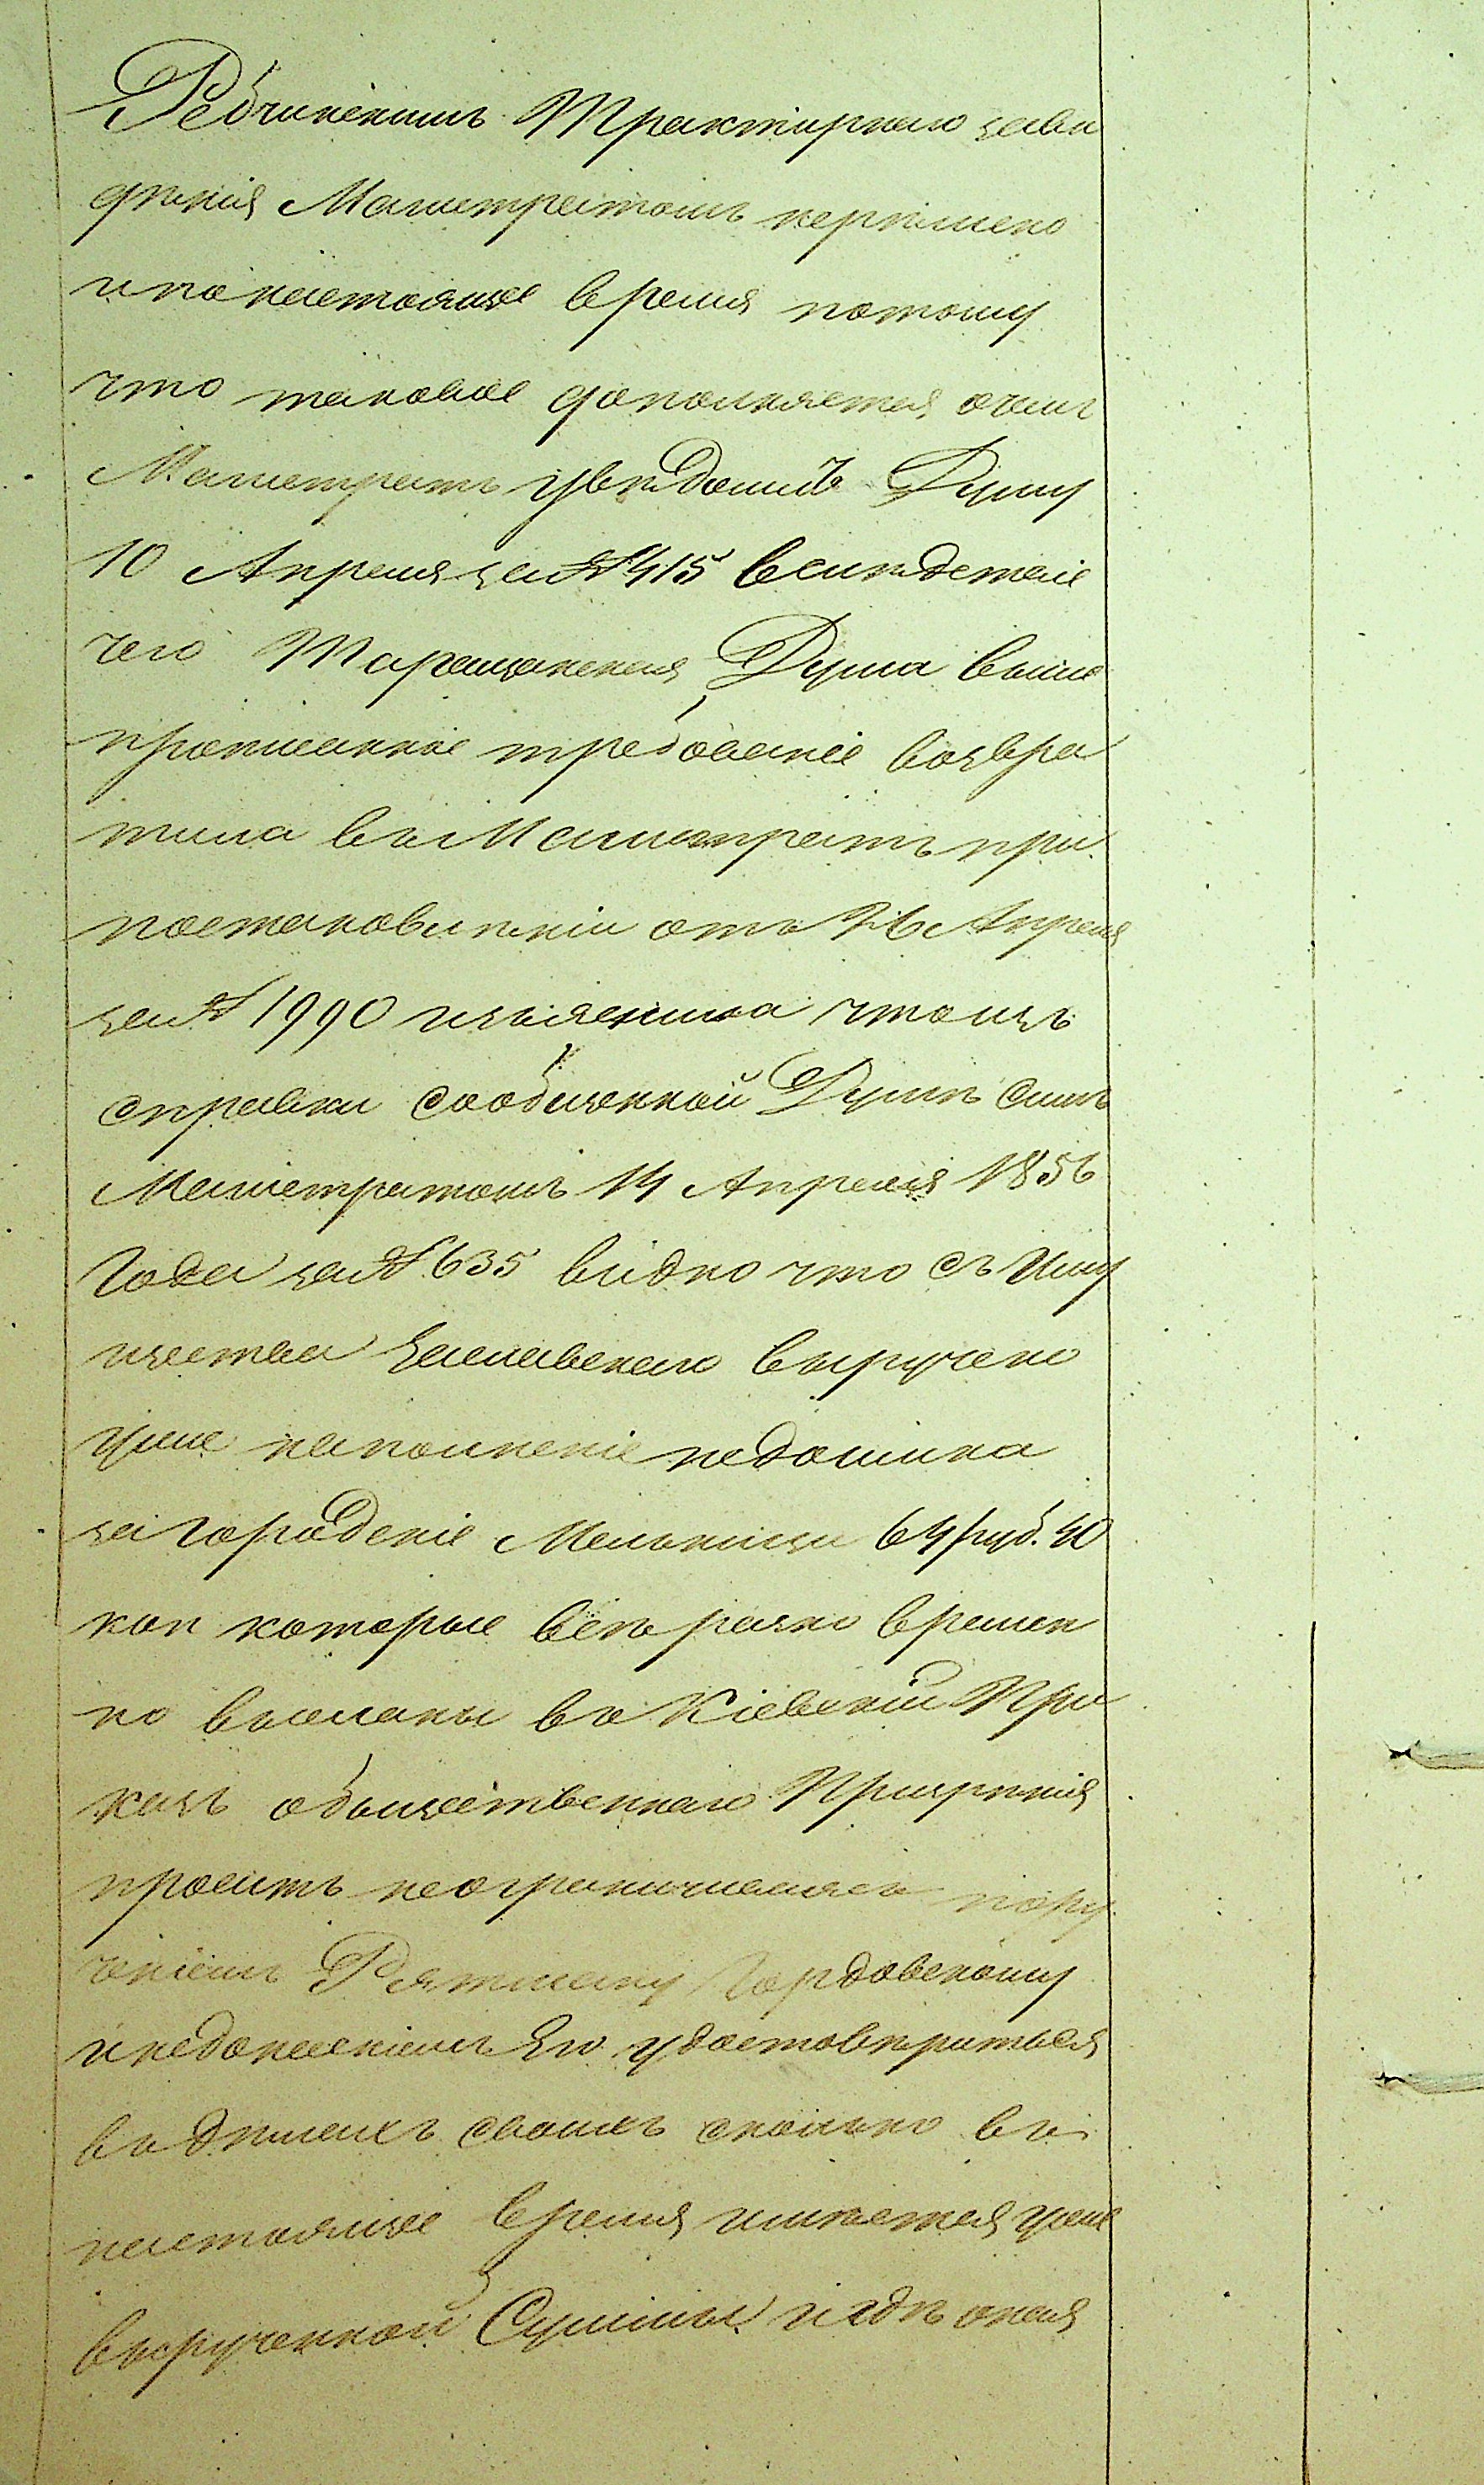 Рабчинскимъ Трактирнаго заве
дѣнія Магистратомъ нерѣшено
и по настоящее время потому
что таковое дополняется о чемъ
Магистратъ увѣдомилъ Думу
10 Апреля за № 415 вслѣдствіе
чего Таращанская Дума выше
прописанное требованіе возвра
тила въ Магистратъ при
постановлѣніи отъ 26 Апреля
за № 1990 изъяснила что изъ
справки сообщенной Думѣ симъ
Магистратомъ 14 Апреля 1856
Года за № 635 видно что съ Иму
щества Заславскаго выручено
уже на полненіе недоимка
за городеніе Мельницы 64 руб. 40
коп которые въ разно времен
но высланы въ Кіевскій При
казъ общественнаго Призрѣнія
проситъ неограничиваясь пору
ченіемъ Ратману Гордовскому
и недонесеніемъ Его удостовѣриться
въ дѣлахъ своихъ сколько въ
настоящее время имѣется уже
вырученной Суммы и гдѣ оная